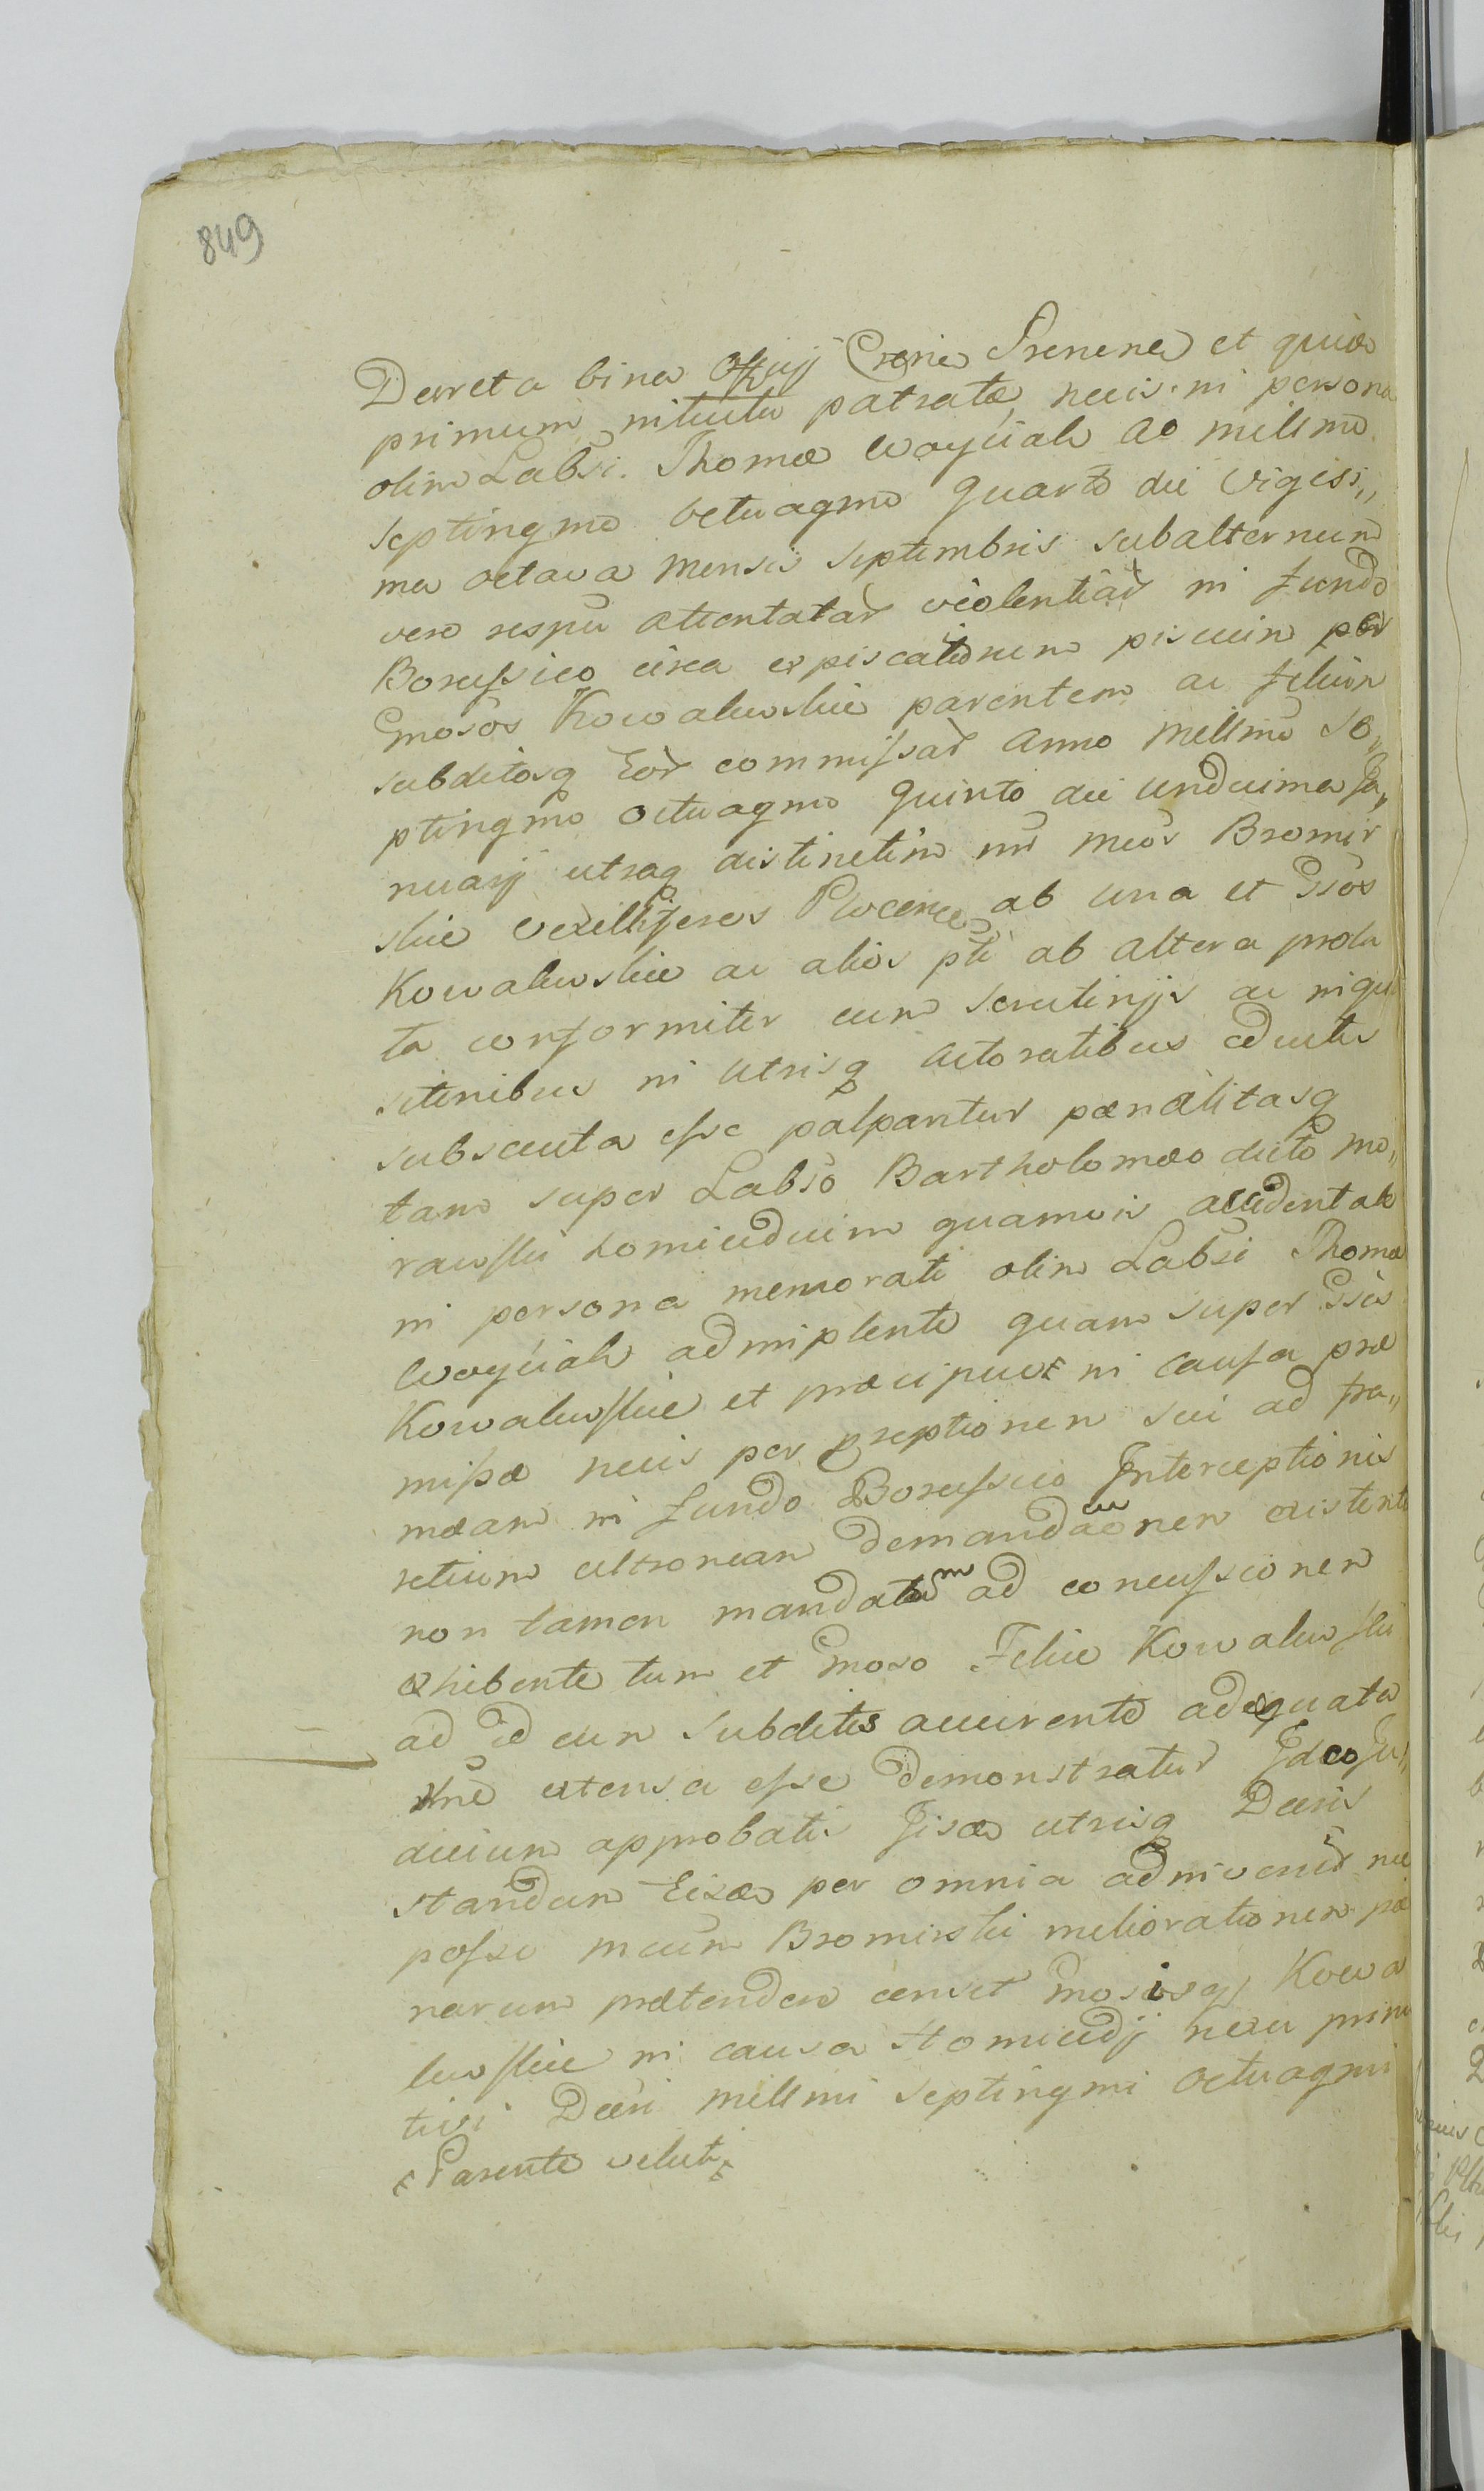 849
Decreta bina Officij Crensis Srenens et quidem
primum intuitu patratæ necis in persona
olim Labsi. Thomæ Woyciak Ao millmo
septingmo octuagmo quarto die Vigesi„
ma octava Mensis Septembris subalternum
vero respu attentatar violentiar in fundo
Borussico circa expiscationem piscium per
Gnosos Kowalewskie parentem ac filium
subditosq Eor commissar Anno Millmo Se„
ptingmo octuagmo quinto die undecima Ja„
nuarij utraq distinctim int Mcos Bromir
skie Vexilliferos Plocens ab una et Gsos
Kowalewskie ac alios pti ab altera prola
ta conformiter cum Scrutinijs ac inqui
sitionibus in utrisq Actoratibus eductis
subsecuta esse palpantur pænalitasq
tam super Labso Bartholomæo dicto Mo„
rawski homicidium quamvis accidentale
in persona memorati olim Labsi Thomæ
Woyciak adimplente quam super Gsis
Kowalewskie et præcipue in causa præ
missæ necis per præptionem sui ad tra„
mæam in fundo Borussico Interceptionis
retium ultroneam demandaonem existente
non tamen mandatum ad concussionem
exhibente tum et Gnoso Felice Kowalewski
ad id cum subditis accurente adæquata
extensa esse demonstratur Ideo Ju„
dicium approbatis Iisdem utrisq Decris
standum Eisdem per omnia adinvenit nec
posse Mcum Bromirski meliorationem pæ
narum prætendere censet Gnososq Kowa
lewskie in causa Homicidij nexu primi
tivi Decri Millmi Septingmi Octuagmi
Parente velut